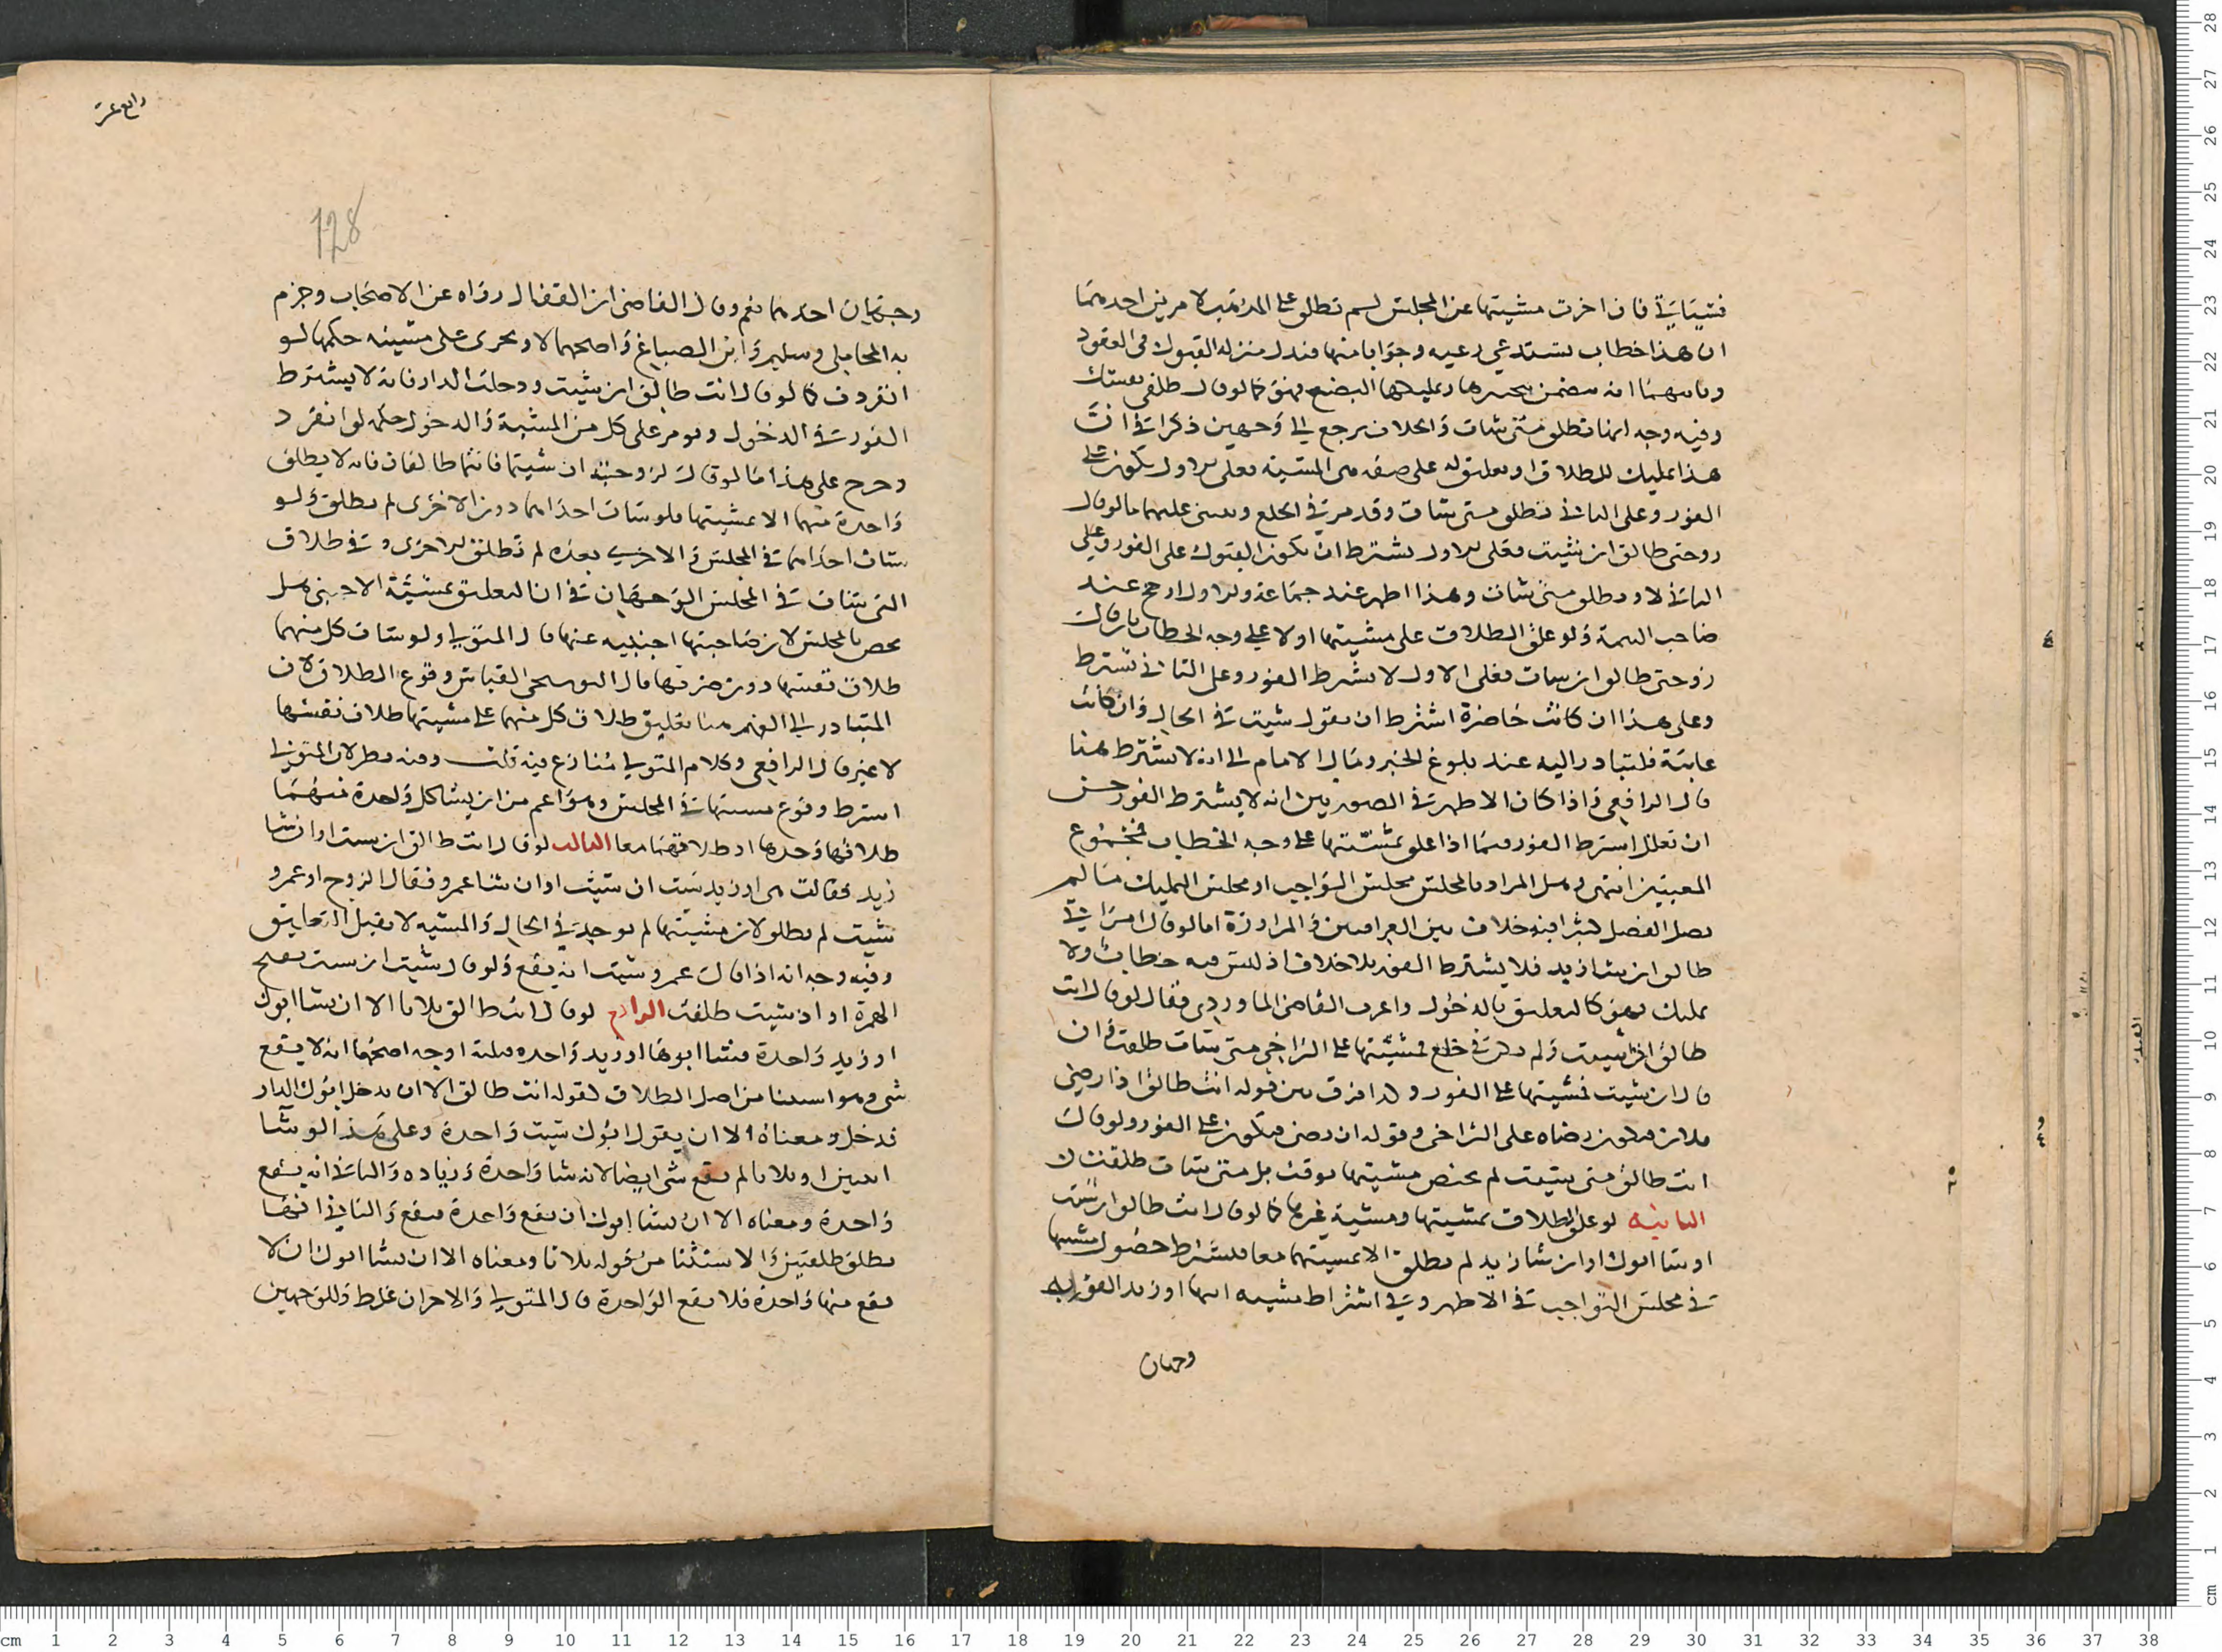 فتشيتاني فان اخرت مشيتها عن المجلس لم تطلق على المذهب لامرين احدهما
ان هذا خطاب يستدعي رغبه وجوابا منها فنزل منزله القبول في العقود
وثانيهما انه يتضمن تخييرها وتمليكها البضع فهو كما لو قال طلقي نفسك
وفيه وجه انها تطلق متى شات والخلاف يرجع الى وجهين ذكرا في ان
هذا تمليك للطلاق او تعليق له على صفه هي المشيه فعلى الاول يكون على
الفور وعلى الثاني تطلق متى شات وقد مر في الخلع وينبني عليهما ما لو قال
زوجتي طالق ان شيت فعلى الاول يشترط ان يكون القبول على الفور وعلى
الثاني لا وتطلق متى شات وهذا اظهر عند جماعة والاول ارجح عند
صاحب التتمة ولو علق الطلاق على مشيتها اولا على وجه الخطاب بان قال
زوجتي طالق ان شات فعلى الاول لا يشترط الفور وعلى الثاني يشترط
وعلى هذا ان كانت حاضرة اشترط ان تقول شيت في الحال وان كانت
غايبة فلتبادر اليه عند بلوغ الخبر ومال الامام الى انه لا يشترط هنا
قال الرافعي واذا كان الاظهر في الصورتين انه لا يشترط الفور حسن
ان تعلل اشترط الفور فيما اذا علق بمشيتها على وجه الخطاب بمجموع
المعنيين انتهى وهل المراد بالمجلس مجلس التواجب او مجلس التمليك ما لم
يطل الفصل كثيرا فيه خلاف بين العراقيين والمراوزة اما لو قال امراتي
طالق ان شا زيد فلا يشترط الفور بلا خلاف اذ ليس فيه خطاب ولا
تمليك فهو كالتعليق بالدخول واغرب القاضي الماوردي فقال لو قال انت
طالق ان شيت ولم يكن في خلع فمشيتها على التراخي متى شات طلقت وان
قال ان شيت فمشيتها على الفور ولا فرق بين قوله انت طالق اذا رضي
فلان فيكون رضاه على التراخي وقوله ان رضي فيكون على الفور ولو قال
انت طالق متى شيت لم يختص مشيتها بوقت بل متى شات طلقت
الثانيه لو علق الطلاق بمشيتها ومشية غيرها كما لو قال انت طالق ان شيت
او شا ابوك او ان شا زيد لم تطلق الا بمشيتهما معا فيشترط حصول مشيتها
في مجلس التواجب في الاظهر وفي اشتراط مشيه ابيها او زيد الفور فيه
وجهان
رابع عشر
128
وجهان احدهما نعم وقال القاضي ان القفال رواه عن الاصحاب وجزم
به المحاملي وسليم وابن الصباغ واصحهما لا ويجري على مشيته حكمها لو
انفردت كما لو قال انت طالق ان شيت ودخلت الدار فانه لا يشترط
الفور في الدخول ويومر على كل من المشية والدخول حكمه لو انفرد
وخرج على هذا ما لو قال لزوجتيه ان شيتما فانتما طالقان فانه لا يطلق
واحدة منهما الا بمشيتها فلو شات احداهما دون الاخرى لم تطلق ولو
شات احداهما في المجلس والاخرى بعده لم تطلق الاخرى وفي طلاق
التي شات في المجلس الوجهان في ان التعليق بمشيئة الاجنبي هل
يختص بالمجلس لان صاحبتها اجنبيه عنها قال المتولي ولو شات كل منهما
طلاق نفسها دون ضرتها قال البوشنجي القياس وقوع الطلاق لان
المتبادر الى الفهم منا تعليق طلاق كل منهما على مشيتها طلاق نفسها
لا غير قال الرافعي وكلام المتولي منازع فيه قلت وفيه نظر لان المتولي
اشترط وقوع مشيتها في المجلس وهو اعم من ان يشا كل واحدة منهما
طلاقها وحدها او طلاقهما معا الثالث لو قال انت طالق ان شيت او ان شا
زيد فقالت هي او زيد شيت ان شيت او ان شا عمرو فقال الزوج او عمرو
شيت لم تطلق لان مشيتها لم توجد في الحال والمشيه لا تقبل التعليق
وفيه وجه انه اذا قال عمرو شيت انه يقع ولو قال شيت ان شيت بفتح
الهمزة او اذ شيت طلقت الرابع لو قال انت طالق ثلاثا الا ان يشا ابوك
او زيد واحدة فشا ابوها او زيد واحده فثلثة اوجه اصحها انه لا يقع
شي وهو استثنا من اصل الطلاق لقوله انت طالق الا ان يدخل ابوك الدار
فدخل ومعناه الا ان يقول ابوك شيت واحدة وعلى هذا لو شا
اثنين او ثلاثا لم يقع شي ايضا لانه شا واحدة وزياده والثاني انه يقع
واحدة ومعناه الا ان يشا ابوك ان يقع واحدة فيقع والثالث انها
تطلق طلقتين والاستثنا من قوله ثلاثا ومعناه الا ان يشا ابوك ان لا
يقع منها واحدة فلا يقع الواحدة قال المتولي والاخران غلط وللوجهين